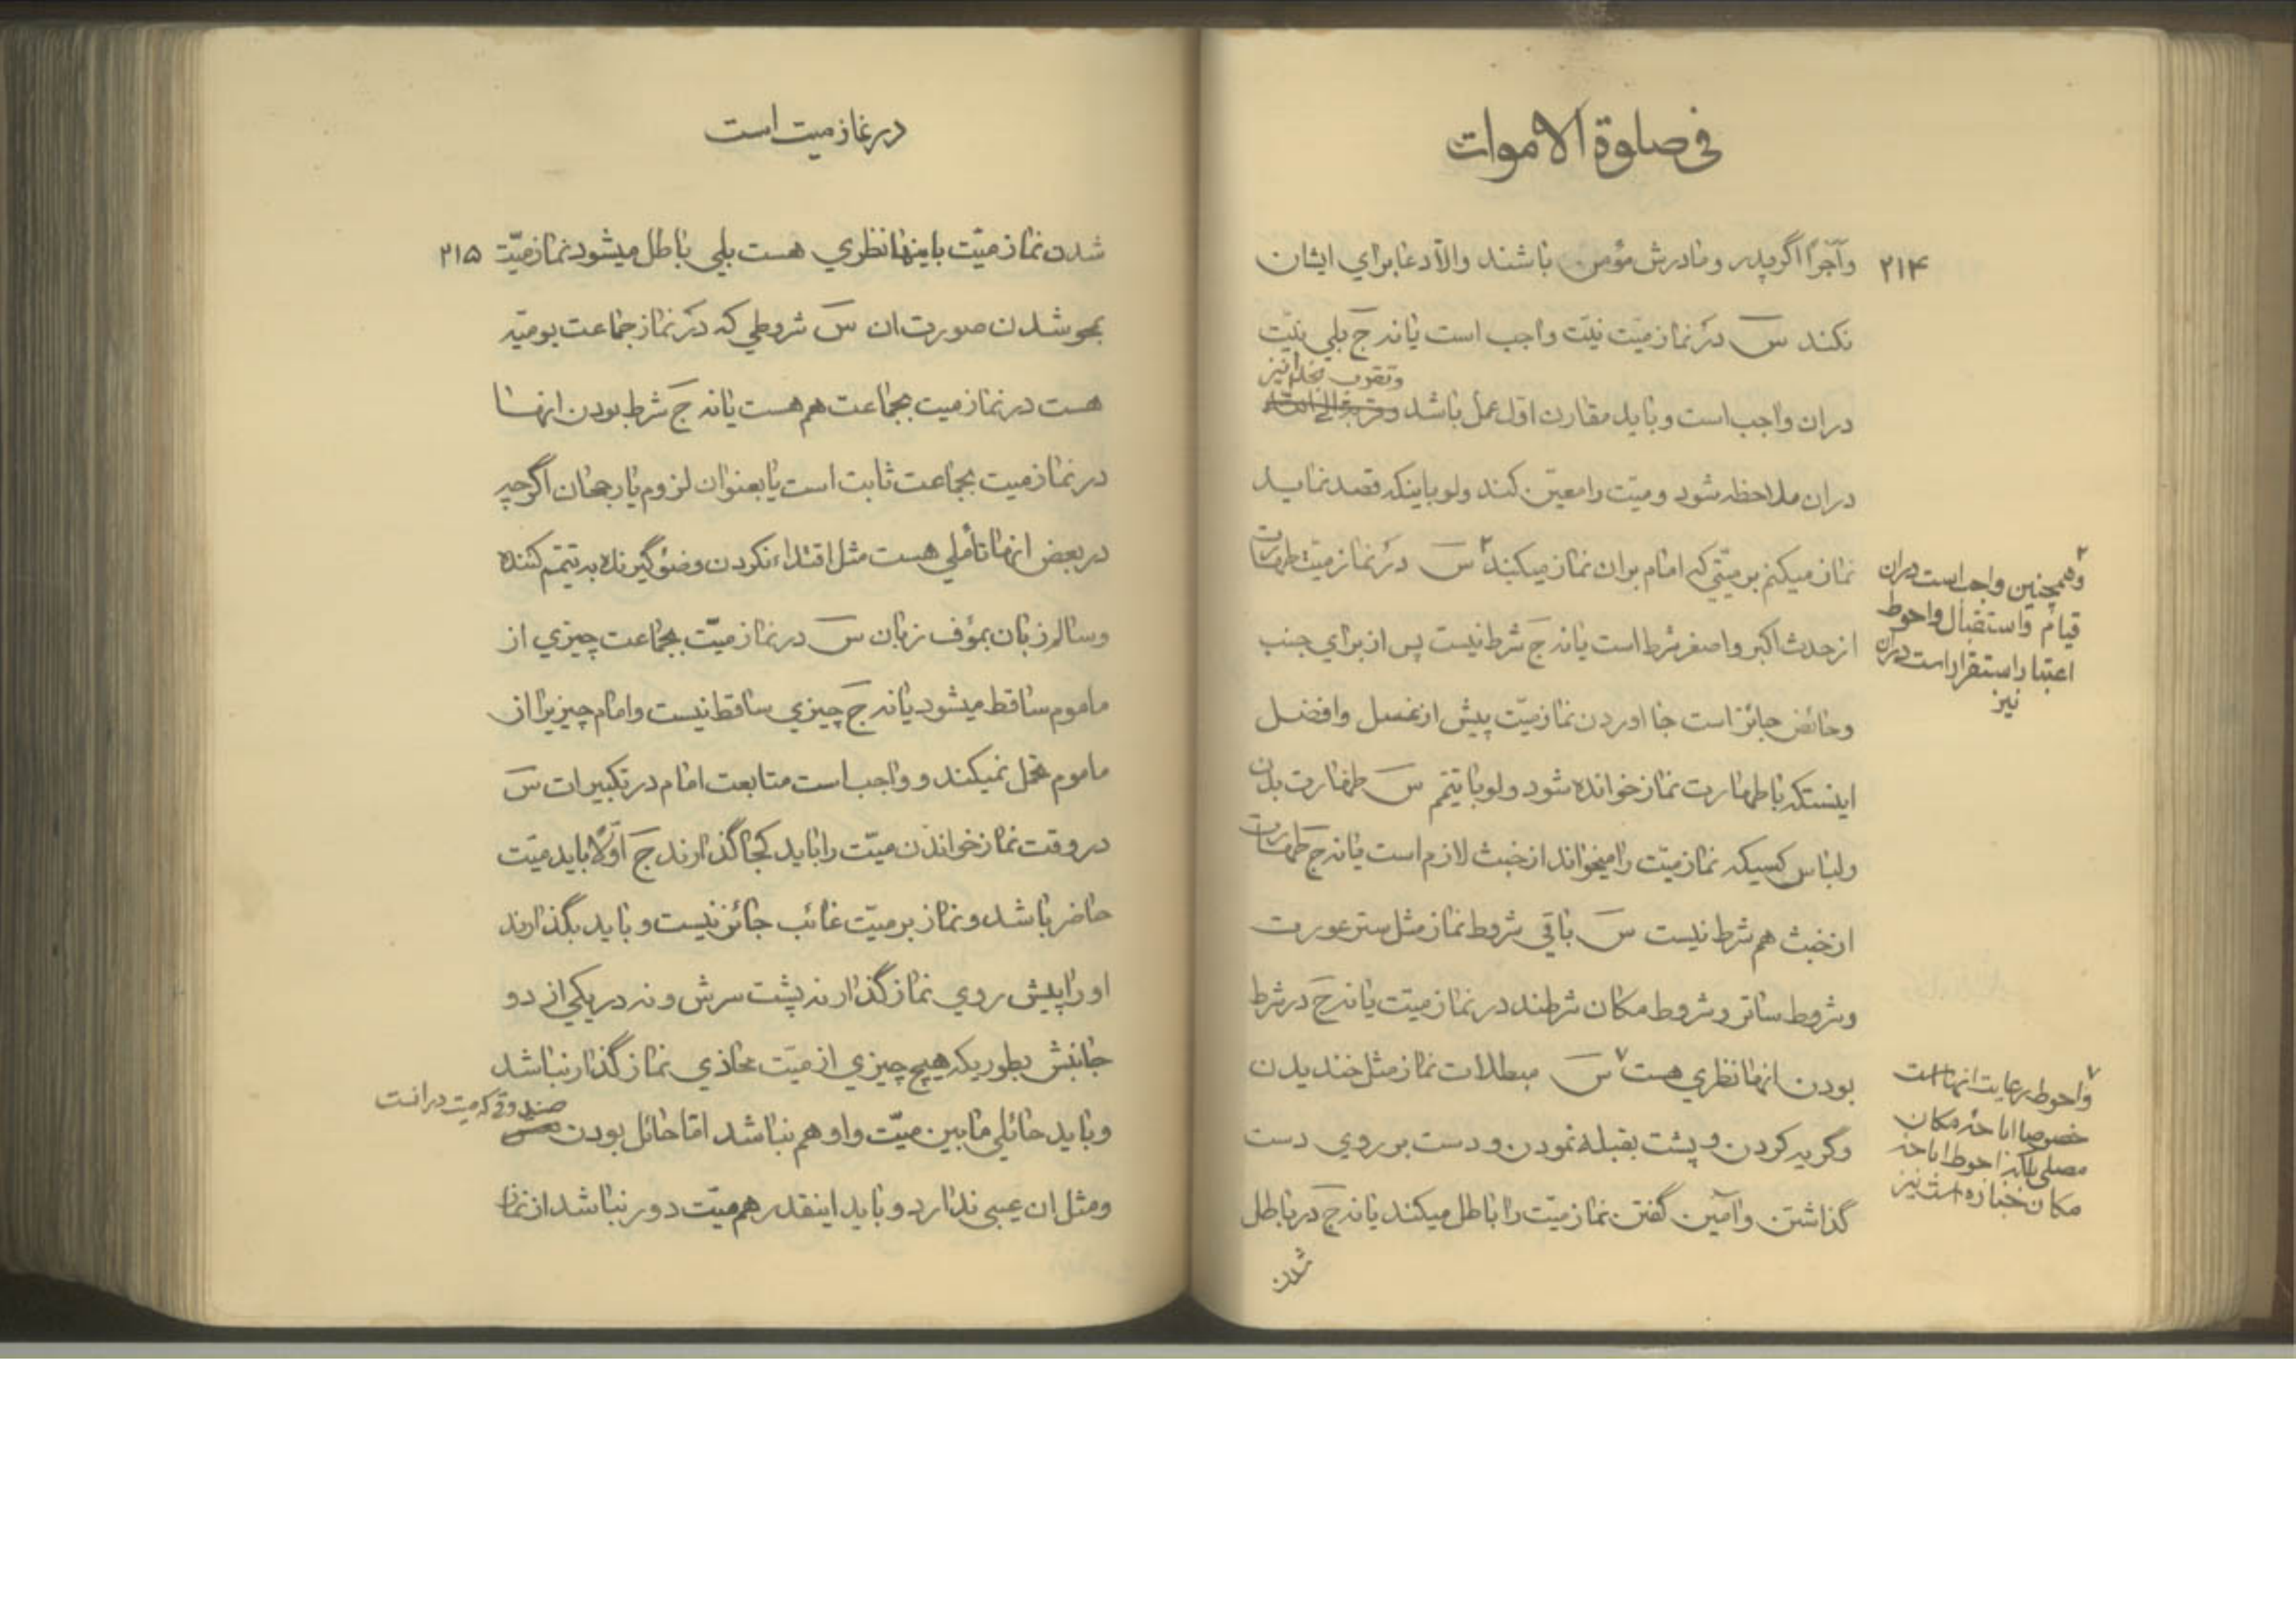 فی صلوة الاموات
۲۱۴
وآجرًا اگر پدر و مادرش مؤمن باشند والّا دعا برای ایشان
نکند س در نماز میّت نیّت واجب است یا نه ج بلی نیّت
وتقرب بخدا نیز
دران واجب است و باید مقارن اول عمل باشد وقربة الی الله
دران ملاحظه شود و میّت را معیّن کند ولو باینکه قصد نماید
نماز میکنم بر میّتی که امام بران نماز میکند ۲ س در نماز میّت طهارت
از حدث اکبر واصغر شرط است یا نه ج شرط نیست پس از برای جنب
وحائض جائز است جا اوردن نماز میّت پیش از غسل وافضل
اینستکه با طهارت نماز خوانده شود ولو با تیمّم س طهارت بدن
ولباس کسیکه نماز میّت را میخواند از خبث لازم است یا نه ج طهارت
از خبث هم شرط نیست س باقی شروط نماز مثل ستر عورت
وشروط ساتر وشروط مکان شرطند در نماز میّت یا نه ج در شرط
بودن انها نظری هست ۷ س مبطلات نماز مثل خندیدن
وگریه کردن و پشت بقبله نمودن و دست بر روی دست
گذاشتن وآمین گفتن نماز میّت را باطل میکند یا نه ج در باطل
شدن
۲
وهمچنین واجب است دران
قیام واستقبال واحوط
اعتبار استقرار است دران
نیز
۷
واحوط رعایت انها است
خصوصا اباحهٔ مکان
مصلی بلکه احوط اباحهٔ
مکان جنازه است نیز
در نماز میت است
شدن نماز میّت باینها نظری هست بلی باطل میشود نماز میّت ۲۱۵
بمحو شدن صورت ان س شروطی که در نماز جماعت یومیّه
هست در نماز میت بجماعت هم هست یا نه ج شرط بودن انها
در نماز میت بجماعت ثابت است یا بعنوان لزوم یا رجحان اگرچه
در بعض انها تأملی هست مثل اقتداء نکردن وضو گیرنده به تیمّم کننده
وسالم زبان بمؤف زبان س در نماز میّت بجماعت چیزی از
ماموم ساقط میشود یا نه ج چیزی ساقط نیست وامام چیزیرا از
ماموم تحمل نمیکند و واجب است متابعت امام در تکبیرات س
در وقت نماز خواندن میّت را باید کجا گذارند ج اوّلا باید میّت
حاضر باشد و نماز بر میّت غائب جائز نیست و باید بگذارند
او را پیش روی نماز گذار نه پشت سرش و نه در یکی از دو
جانبش بطوریکه هیچ چیزی از میّت محاذی نماز گذار نباشد
صندوقی که میت در انست
وباید حائلی مابین میّت واو هم نباشد امّا حائل بودن
ومثل ان عیبی ندارد و باید اینقدر هم میّت دور نباشد از نماز